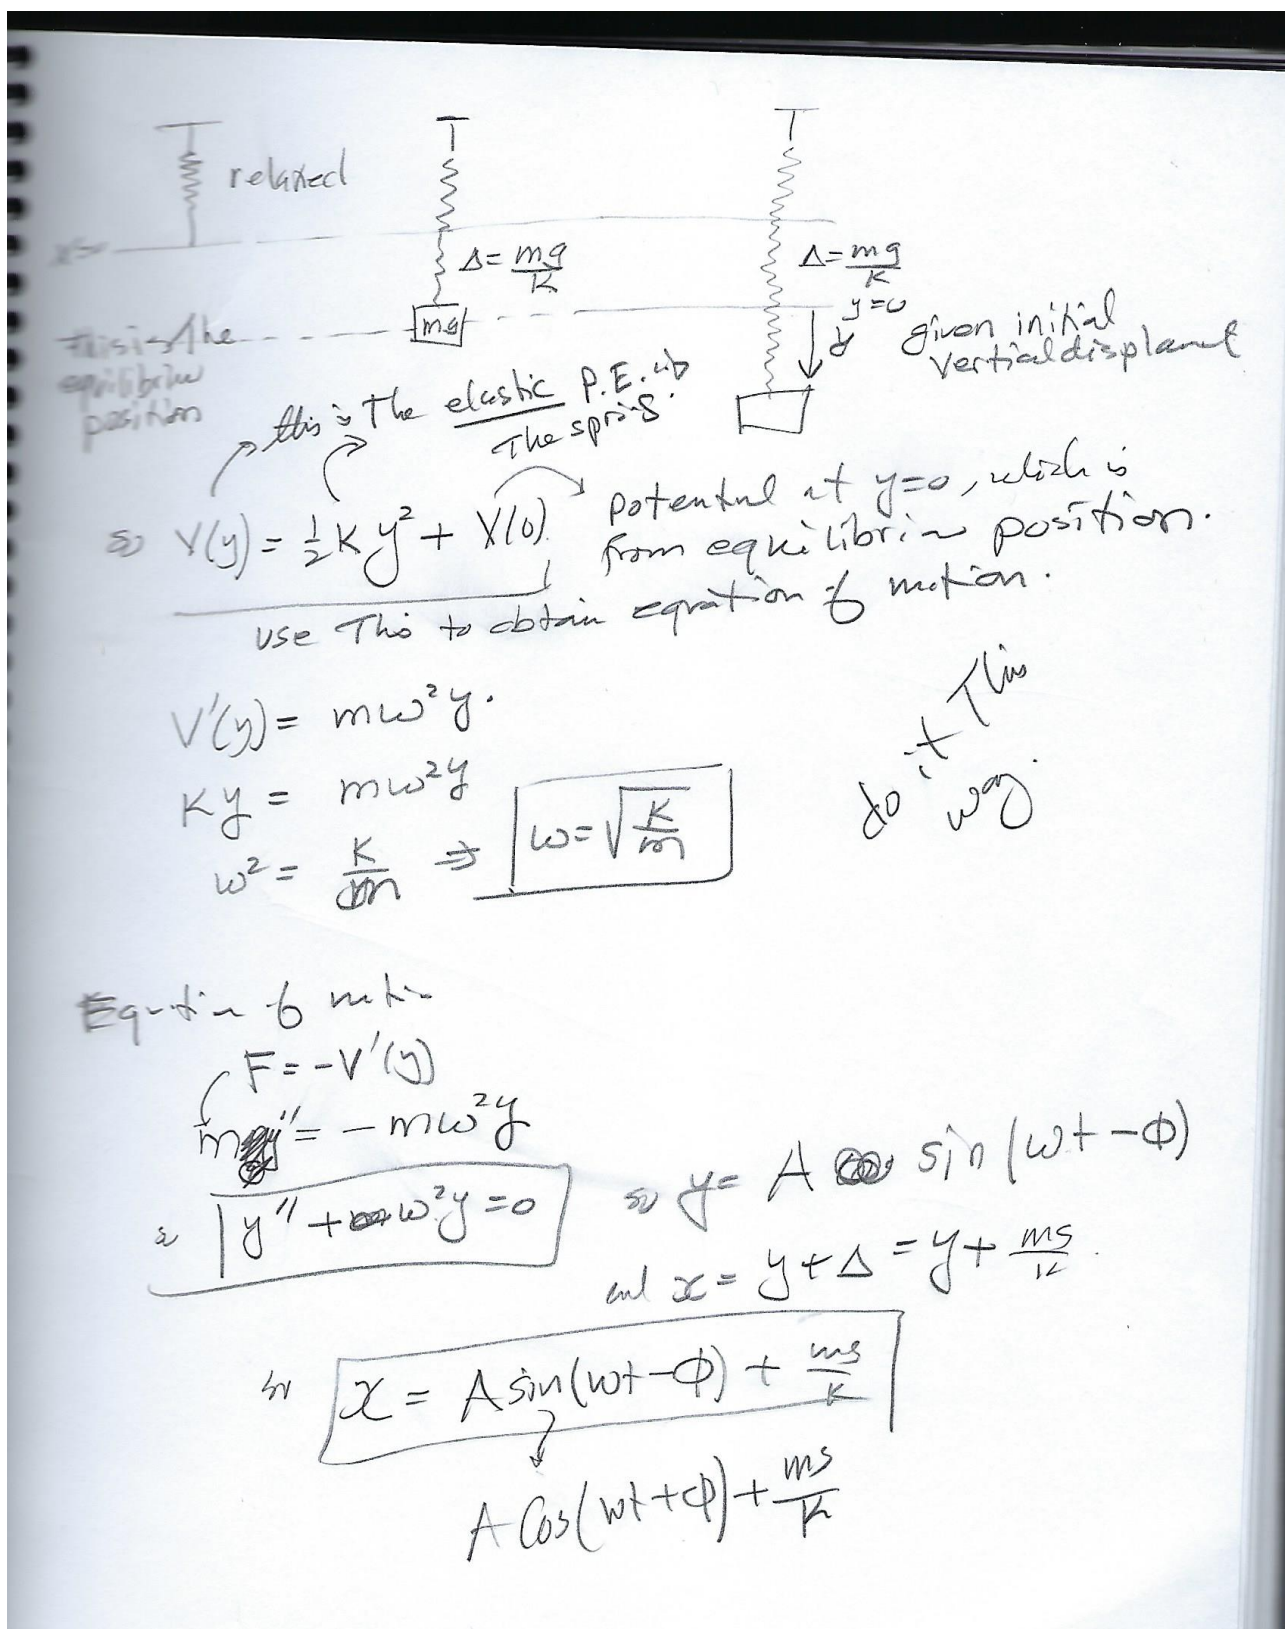 relaxed
x=0
Δ = mg/K
Δ = mg/K
y=0
mg
this is the
equilibrium
position
y
given initial
vertical displament
this is the elastic P.E. in
the spring.
so V(y) = 1/2 K y² + V(0)
potential at y=0, which is
from equilibrium position.
use this to obtain equation of motion.
V'(y) = mω²y.
Ky = mω²y
ω² = K/m ⇒ ω = √(K/m)
do it this
way.
Equation of motion
F = -V'(y)
my'' = -mω²y
y'' + ω²y = 0
so y = A sin(ωt - Φ)
and x = y + Δ = y + mg/K.
x = A sin(ωt - Φ) + mg/K
A Cos(ωt + Φ) + mg/K